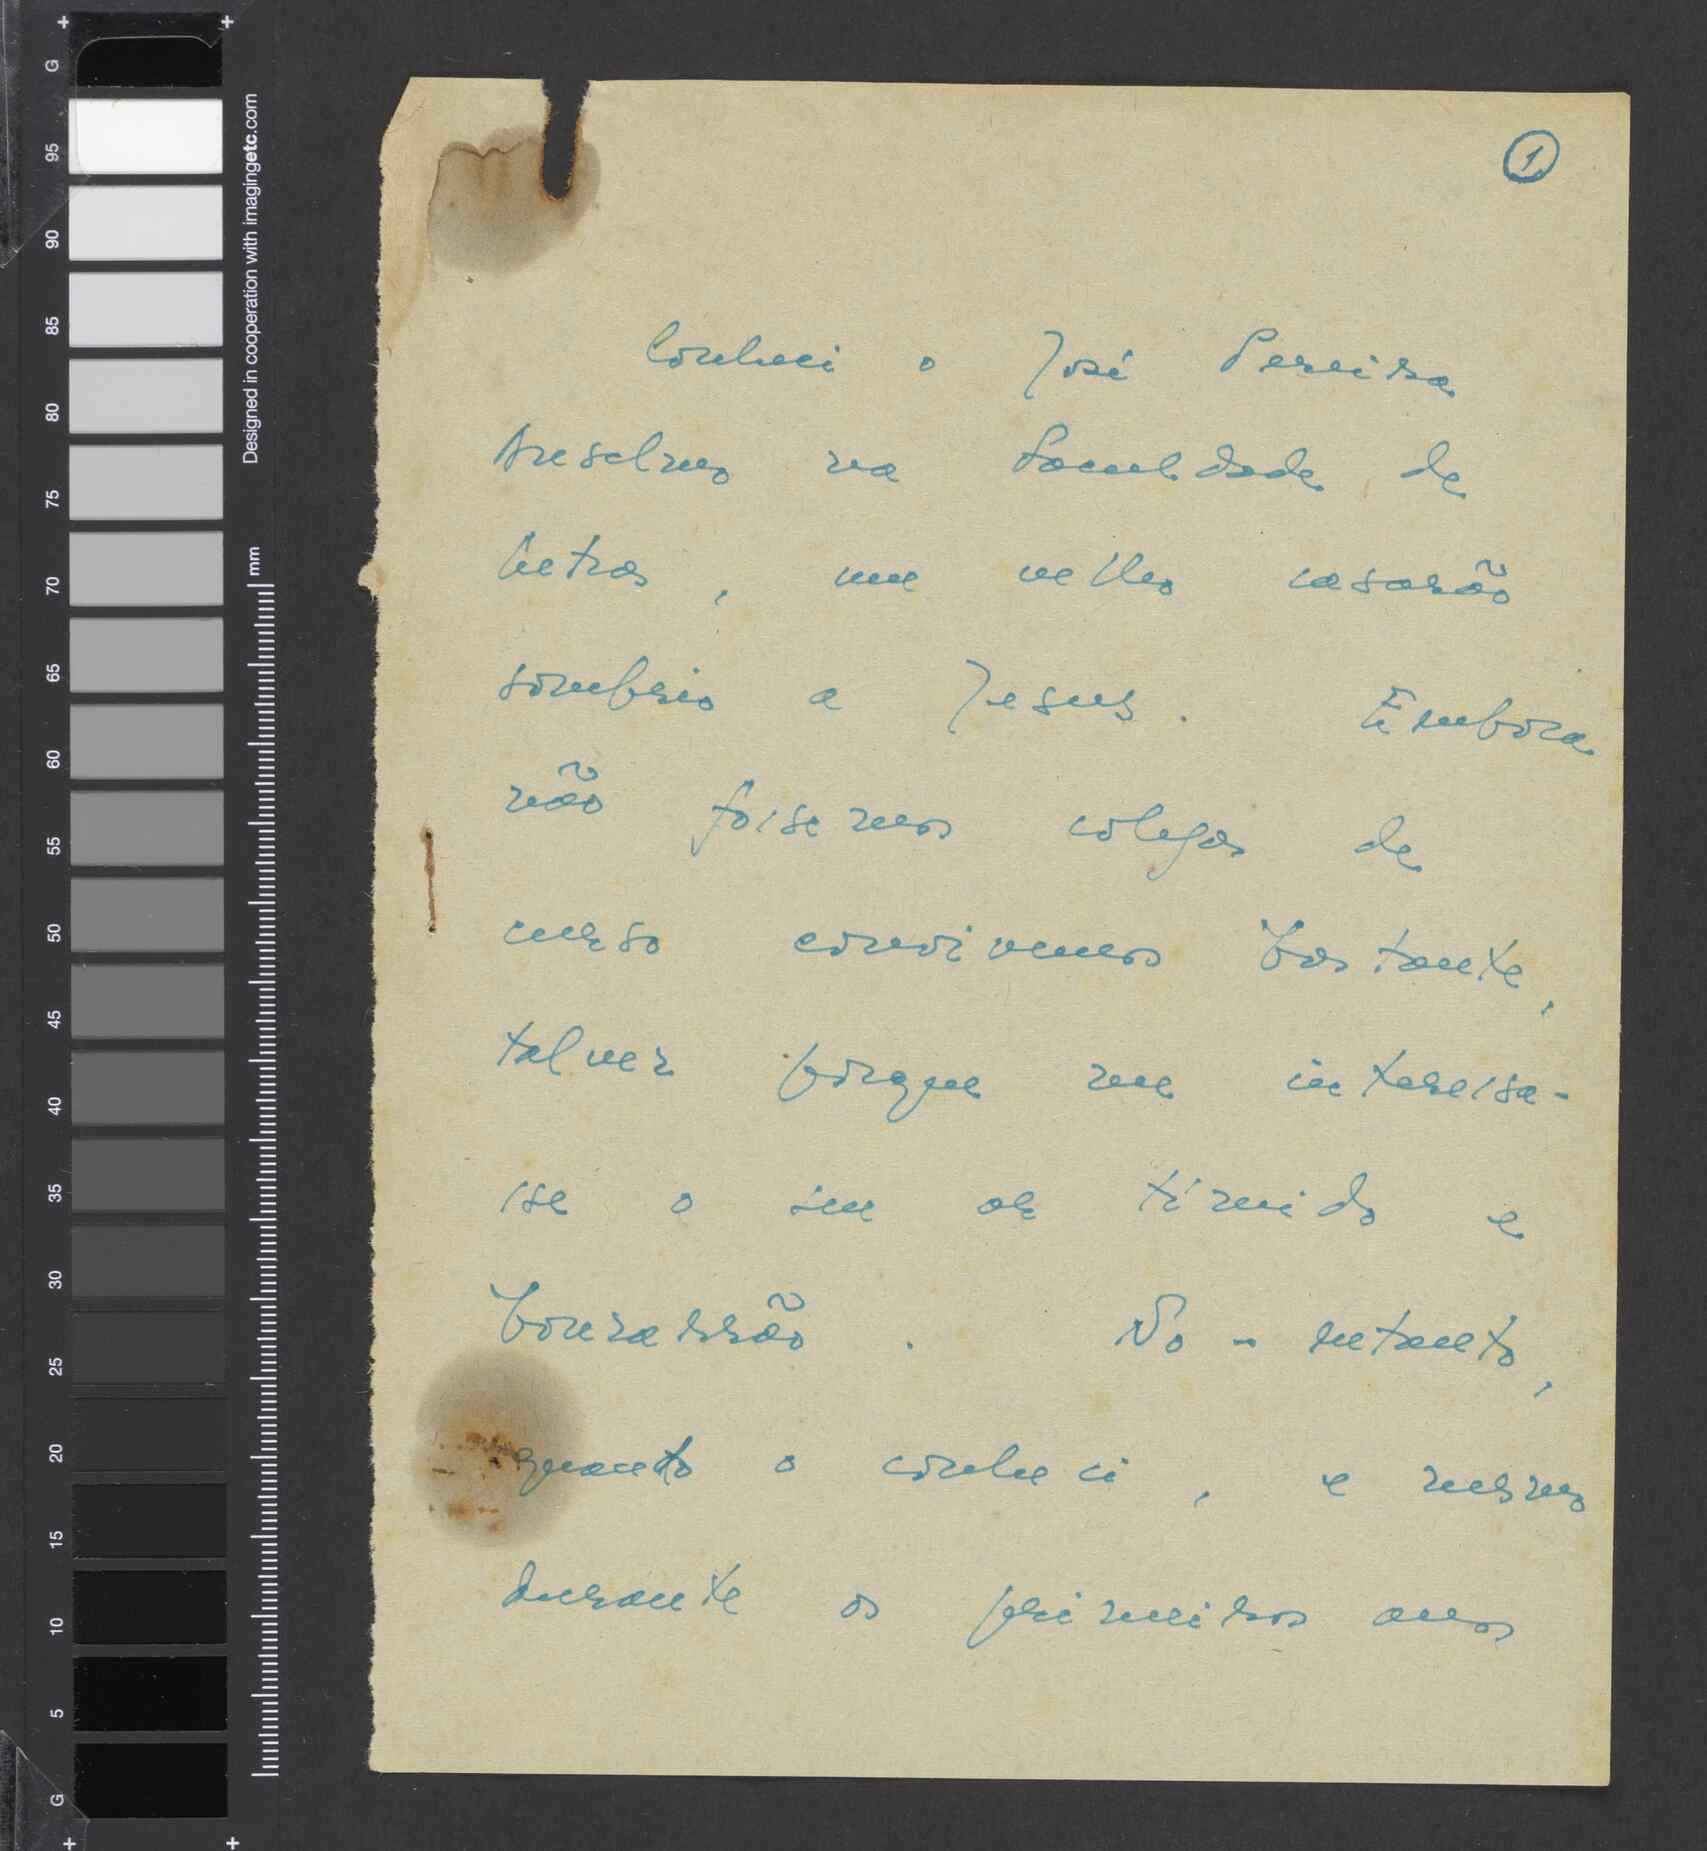 1
Conheci o José Pereira
Anselmo na Faculdade de
Letras, um velho casarão
sombrio a Jesus. Embora
não fossemos colegas de
curso convivemos bastante,
talvez porque me interessa-
sse o seu ar tímido e
bonzarrão. No-entanto,
quanto o conheci, e mesmo
durante os primeiros anos
Designed in cooperation with imagingetc.com
mm
G
95
90
85
80
75
70
65
60
55
50
45
40
35
30
25
20
15
10
5
G